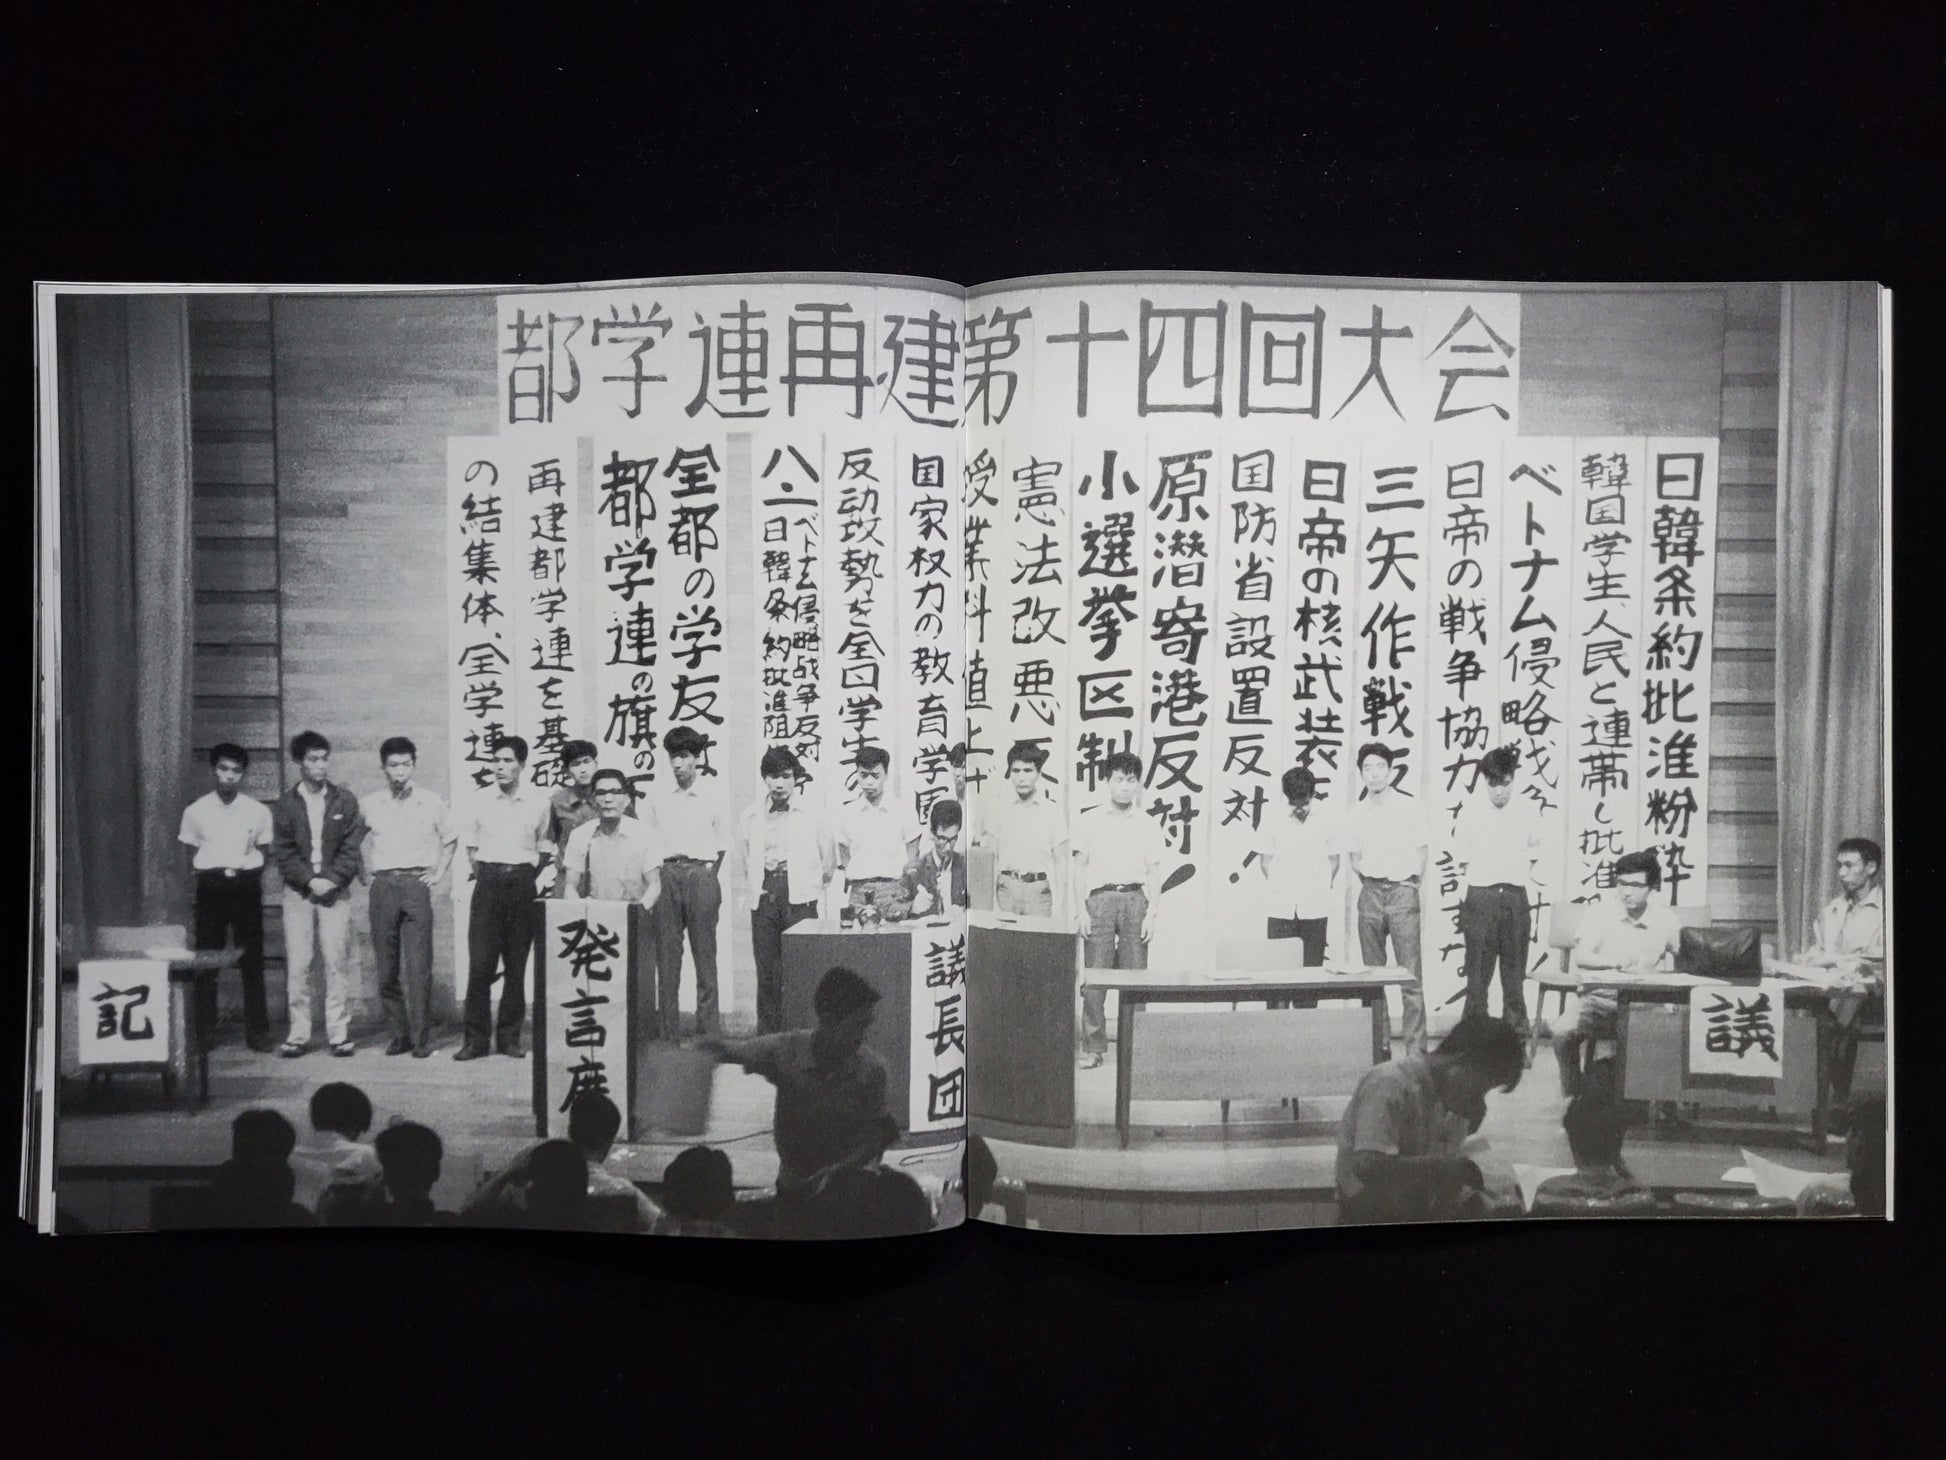 都学連再建第十四回大会
日韓条約批准粉砕
韓国学生、人民と連帯し批准
ベトナム侵略戦争
日帝の戦争協力を許すな!
三矢作戦反
日帝の核武装
国防省設置反対!
原潜寄港反対!
小選挙区制
憲法改悪反
授業料値上げ
国家権力の教育学園
反動攻勢を全国学生の
ベトナム侵略战争反対
八・一日韓条約批准阻
全都の学友は
都学連の旗の下
再建都学連を基礎
の結集体、全学連を
記
発言席
議長団
議